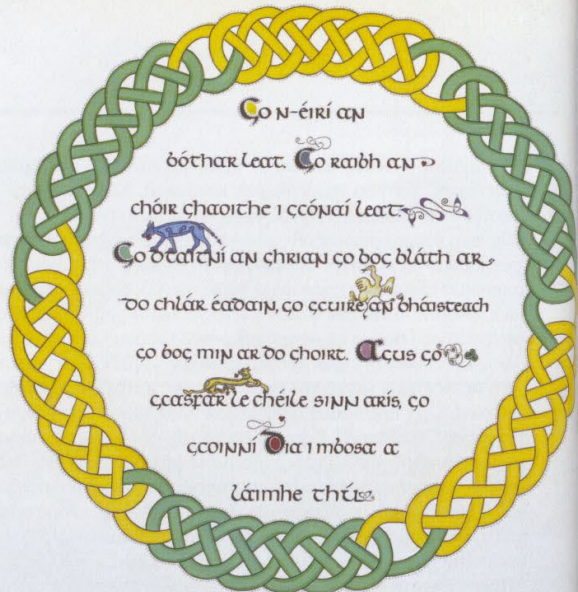 Go n-éirí an
bóthar leat. Go raibh an
chóir ghaoithe i gcónaí leat.
Go dtaitní an ghrian go bog bláth ar
do chlár éadain, go gcuire an bháisteach
go bog mín ar do ghoirt. Agus go
gcasfar le chéile sinn arís, go
gcoinní Dia i mbosa a
láimhe thú.